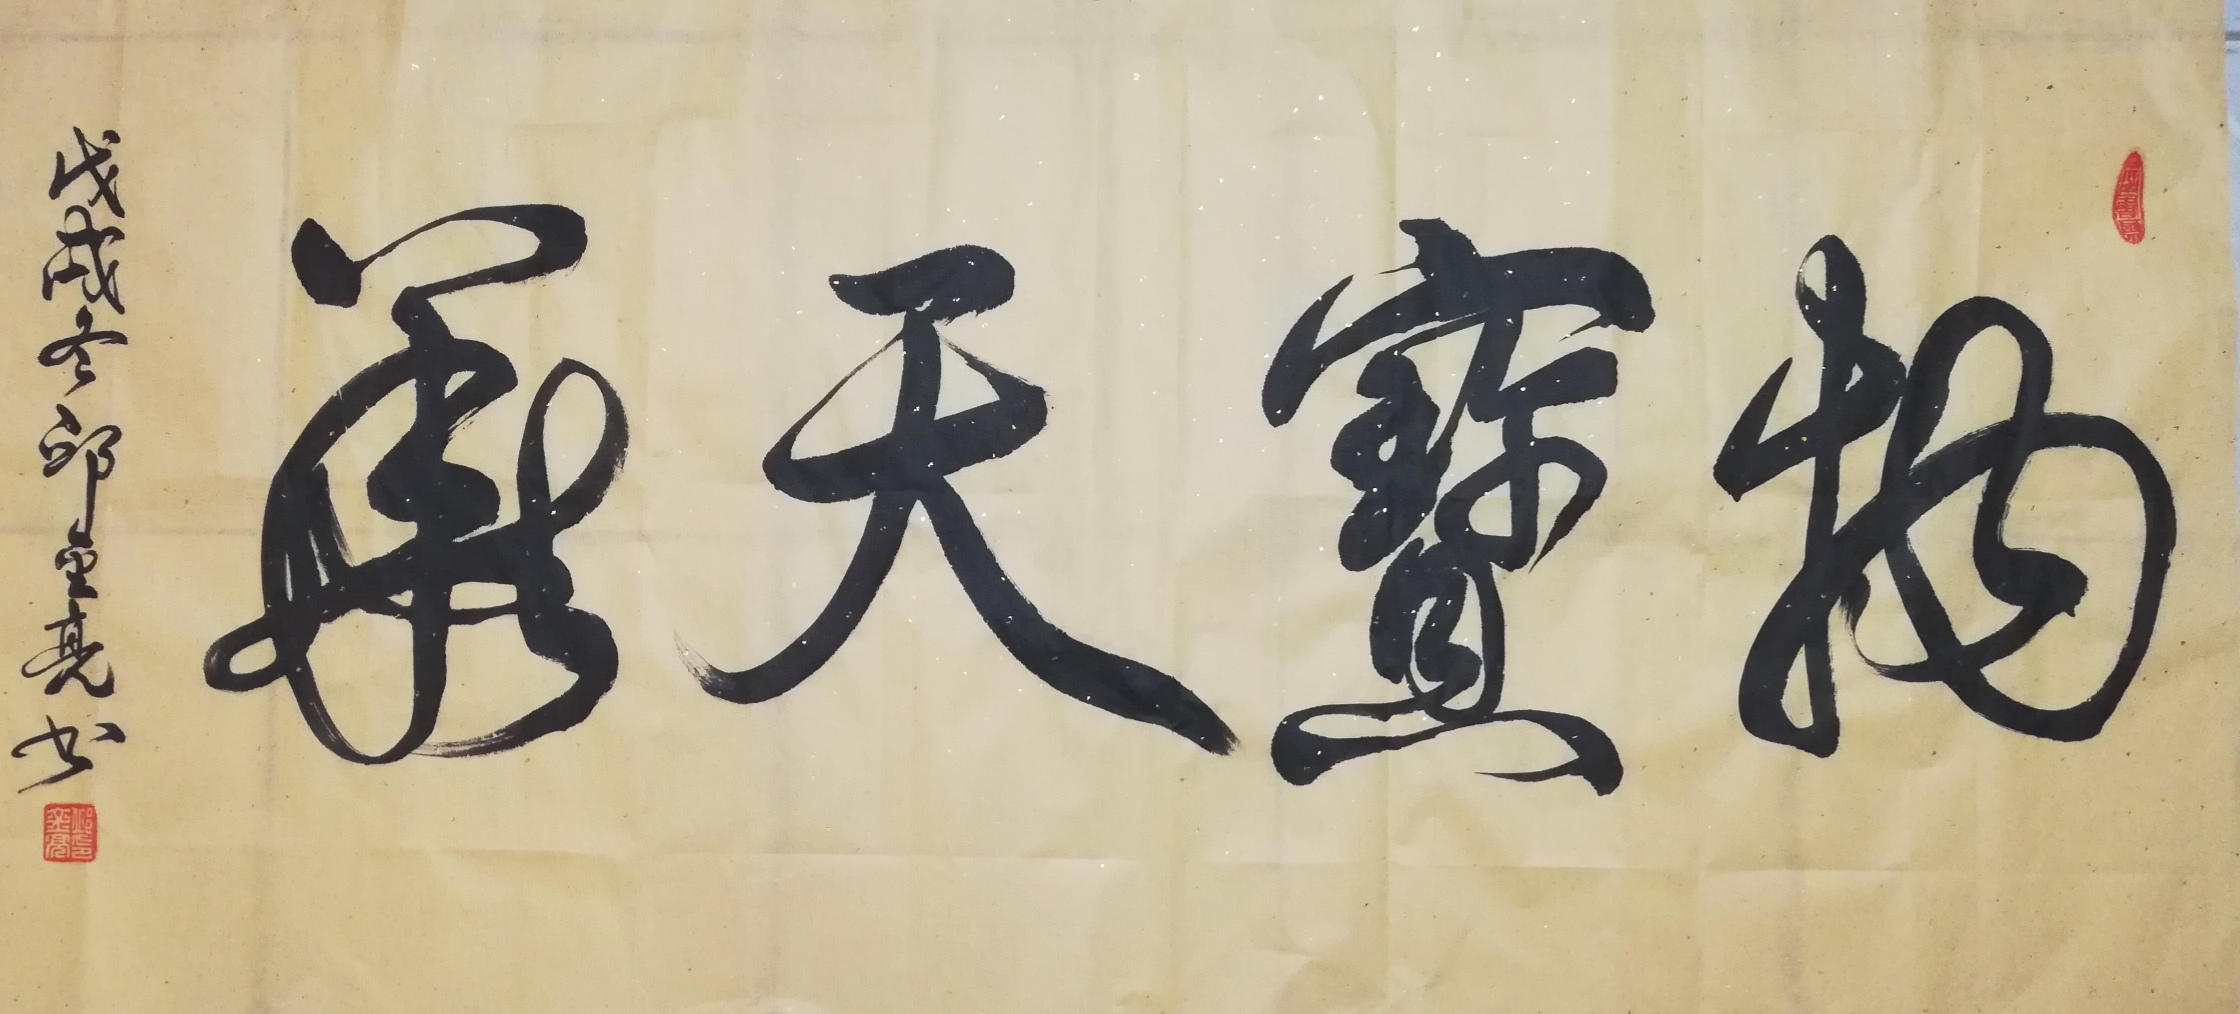 物寶天華
戊戌冬邱金亮书